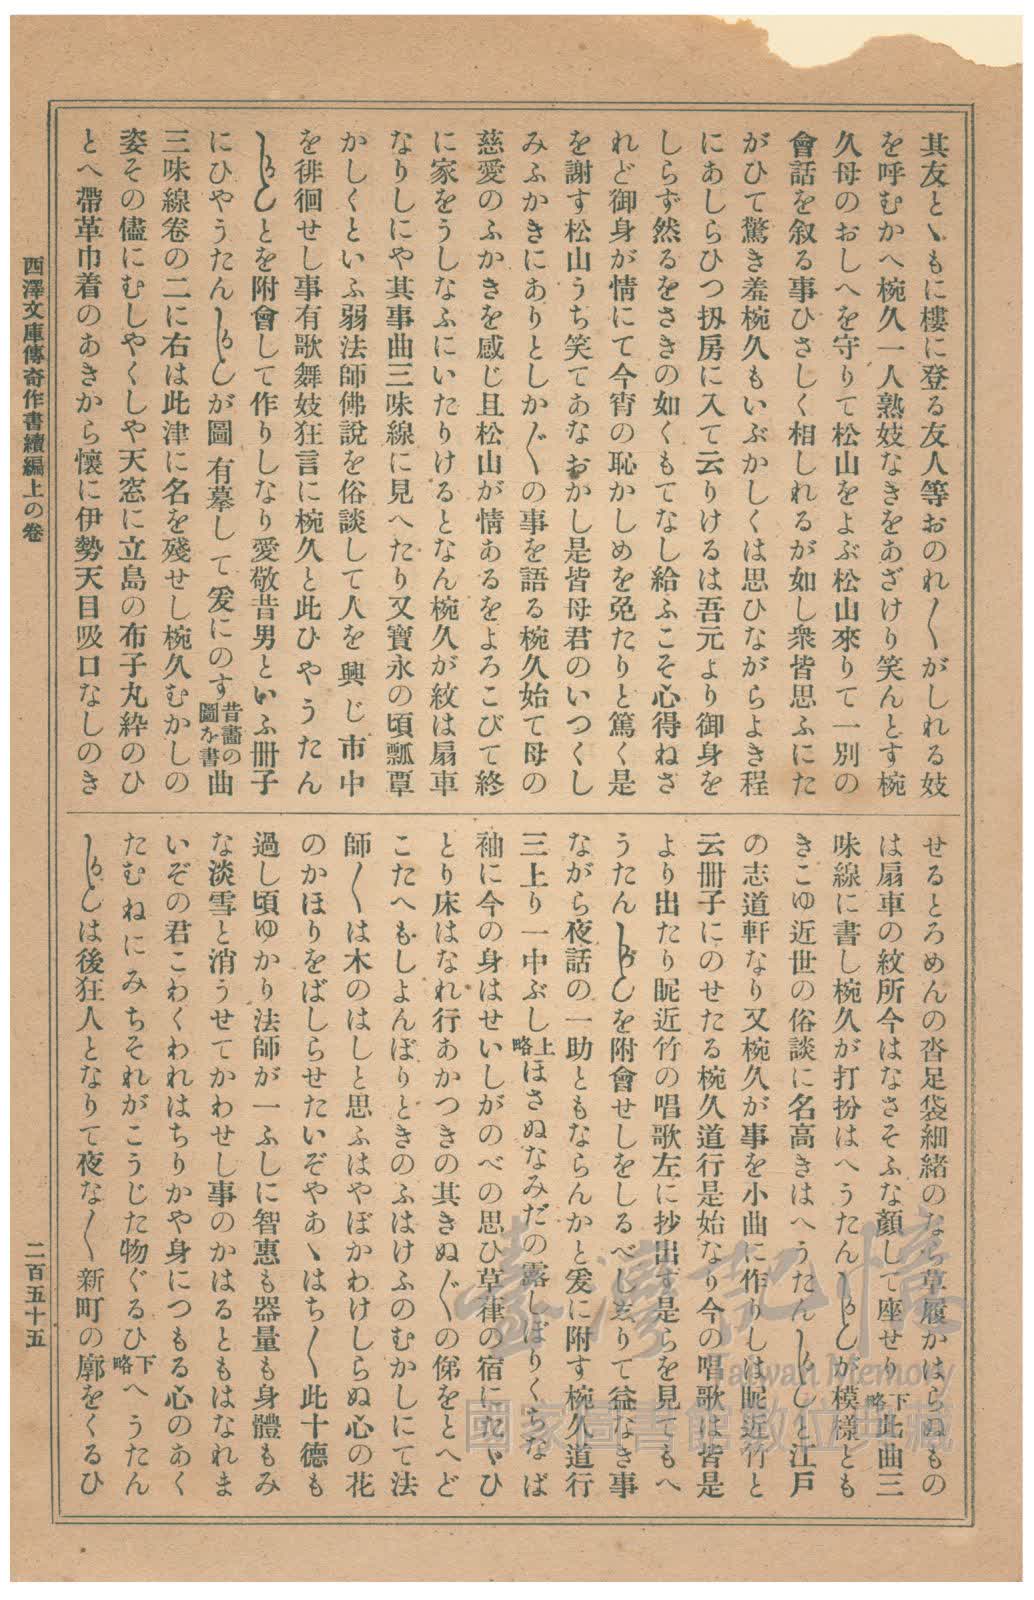 其友とゝもに樓に登る友人等おのれ〳〵がしれる妓
を呼むかへ椀久一人熟妓なきをあざけり笑んとす椀
久母のおしへを守りて松山をよぶ松山來りて一別の
會話を叙る事ひさしく相しれるが如し衆皆思ふにた
がひて驚き羞椀久もいぶかしくは思ひながらよき程
にあしらひつ扨房に入て云りけるは吾元より御身を
しらず然るをさきの如くもてなし給ふこそ心得ねさ
れど御身が情にて今宵の恥かしめを免たりと篤く是
を謝す松山うち笑てあなおかし是皆母君のいつくし
みふかきにありとしか〴〵の事を語る椀久始て母の
慈愛のふかきを感じ且松山が情あるをよろこびて終
に家をうしなふにいたりけるとなん椀久が紋は扇車
なりしにや其事曲三味線に見へたり又寶永の頃瓢覃
かしくといふ弱法師佛說を俗談して人を興じ市中
を徘徊せし事有歌舞妓狂言に椀久と此ひやうたん
とを附會して作りしなり愛敬昔男といふ冊子
にひやうたんが圖有摹して爰にのす昔畵の圖を書曲
三味線卷の二に右は此津に名を殘せし椀久むかしの
姿その儘にむしやくしや天窓に立島の布子丸絎のひ
とへ帶革巾着のあきから懷に伊勢天目吸口なしのき
せるとろめんの沓足袋細緒のなら草履かはらぬもの
は扇車の紋所今はなさそふな顏して座せり下略此曲三
味線に書し椀久が打扮はへうたんが模樣とも
きこゆ近世の俗談に名高きはへうたんと江戶
の志道軒なり又椀久が事を小曲に作りしは眤近竹と
云冊子にのせたる椀久道行是始なり今の唱歌は皆是
より出たり眤近竹の唱歌左に抄出す是らを見てもへ
うたんを附會せしをしるべしゑりて益なき事
ながら夜話の一助ともならんかと爰に附す椀久道行
三上り一中ぶし上略ほさぬなみだの露しぼりくちなば
袖に今の身はせいしがのべの思ひ草葎の宿にたゞひ
とり床はなれ行あかつきの其きぬ〴〵の俤をとへど
こたへもしよんぼりときのふはけふのむかしにて法
師〳〵は木のはしと思ふはやぼかわけしらぬ心の花
のかほりをばしらせたいぞやあゝはち〳〵此十德も
過し頃ゆかり法師が一ふしに智惠も器量も身體もみ
な淡雪と消うせてかわせし事のかはるともはなれま
いぞの君こわくわれはちりかや身につもる心のあく
たむねにみちそれがこうじた物ぐるひ下略へうたん
は後狂人となりて夜な〳〵新町の廓をくるひ
西澤文庫傳奇作書續編上の卷
二百五十五
臺灣記憶
Taiwan Memory
國家圖書館數位典藏